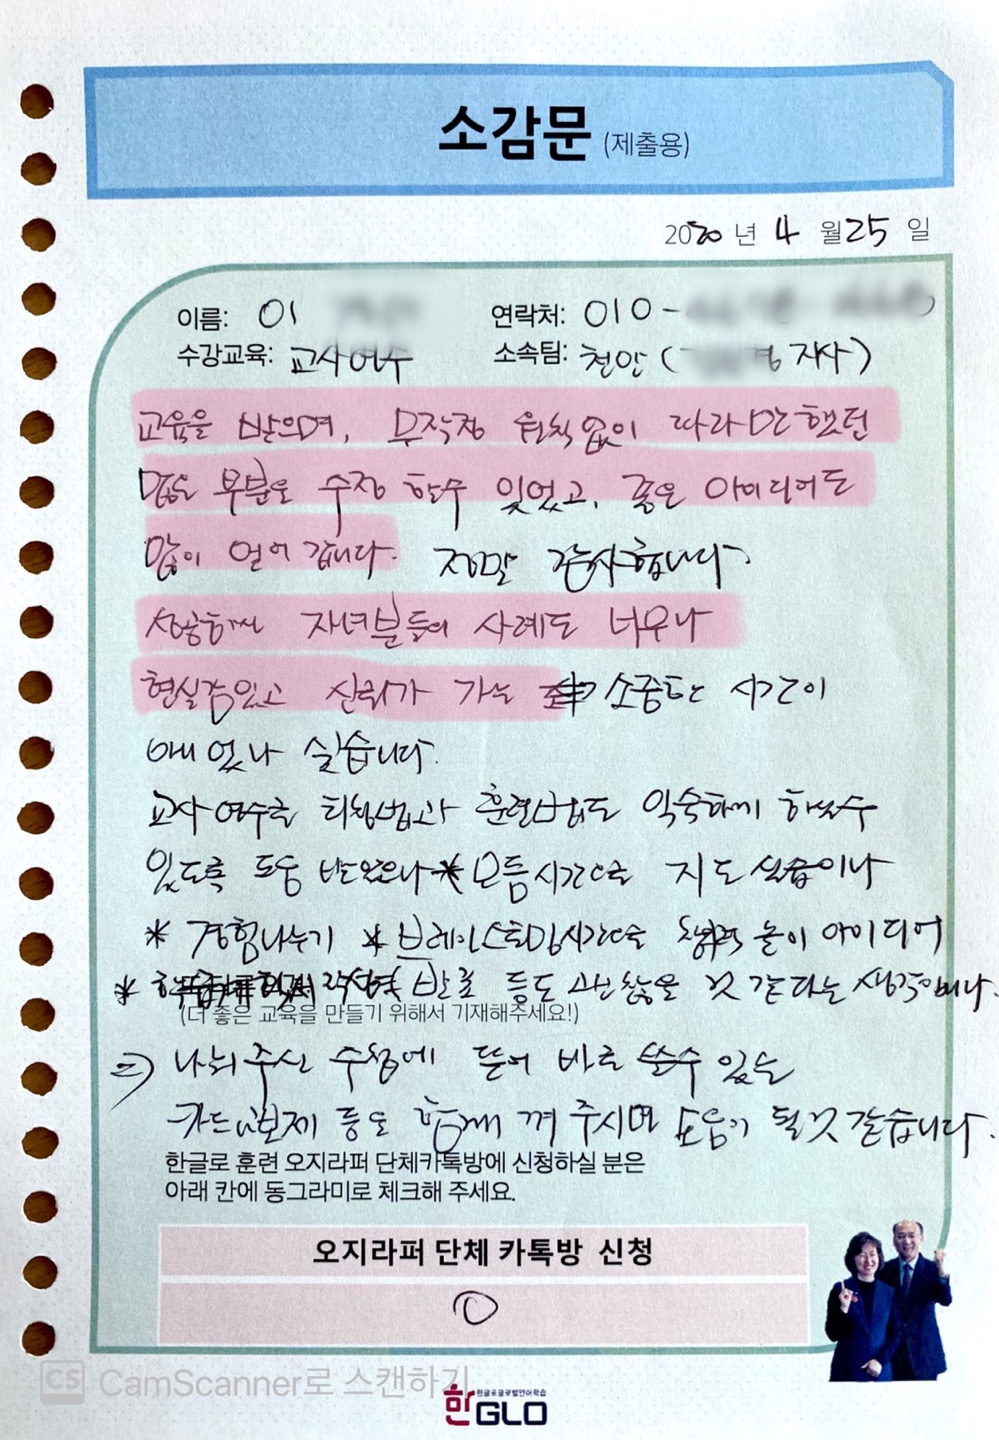 소감문 (제출용)
2020 년 4 월 25 일
이름: 이 연락처: 010-
수강교육: 교사연수 소속팀: 천안 ( 지사)
교육을 받으며, 무작정 원칙 없이 따라만 했던
많은 부분을 수정 할수 있었고, 좋은 아이디어도
많이 얻어 갑니다. 정말 감사합니다.
성공하신 자녀분들의 사례도 너무나
현실감있고 신뢰가 가는 소중한 시간이
아니 였나 싶습니다.
교사 연수를 티칭법과 훈련법도 익숙하게 할수
있도록 도움 받았으나 * 모둠시간을 지도 실습이나
* 경험나누기 * 브레인스토밍시간을 창의적 놀이 아이디어
* 발표 등도 괜찮을 것 같다는 생각입니다.
(더 좋은 교육을 만들기 위해서 기재해주세요!)
⇒ 나눠주신 수첩에 뜯어 바로 쓸수 있는
카드 등도 함께 껴 주시면 도움이 될것 같습니다.
한글로 훈련 오지라퍼 단체카톡방에 신청하실 분은
아래 칸에 동그라미로 체크해 주세요.
오지라퍼 단체 카톡방 신청
CS CamScanner로 스캔하기
한글로글로벌언어학습
한GLO